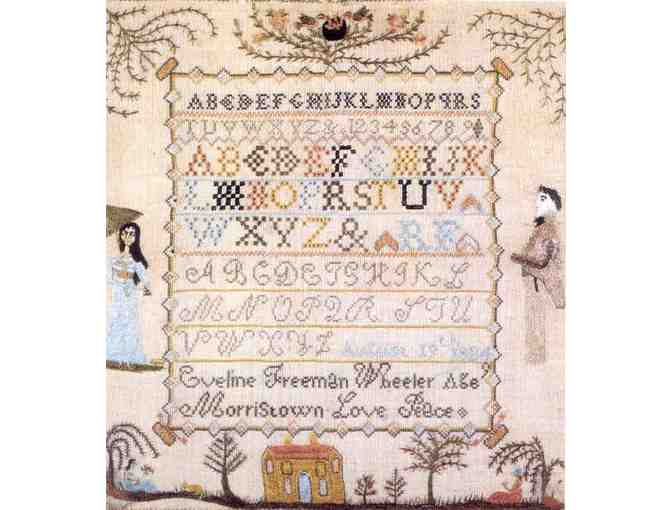 ABCDEFGHIJKLMNOPQRS
TUVWXYZ&123456789
ABCDEFGHIJK
LMNOPRSTUV
WXYZ& RF
ABCDEFGHIKL
MNOPQR STU
VWXYZ August 19
Eveline Freeman Wheeler Age
Morristown Love Peace